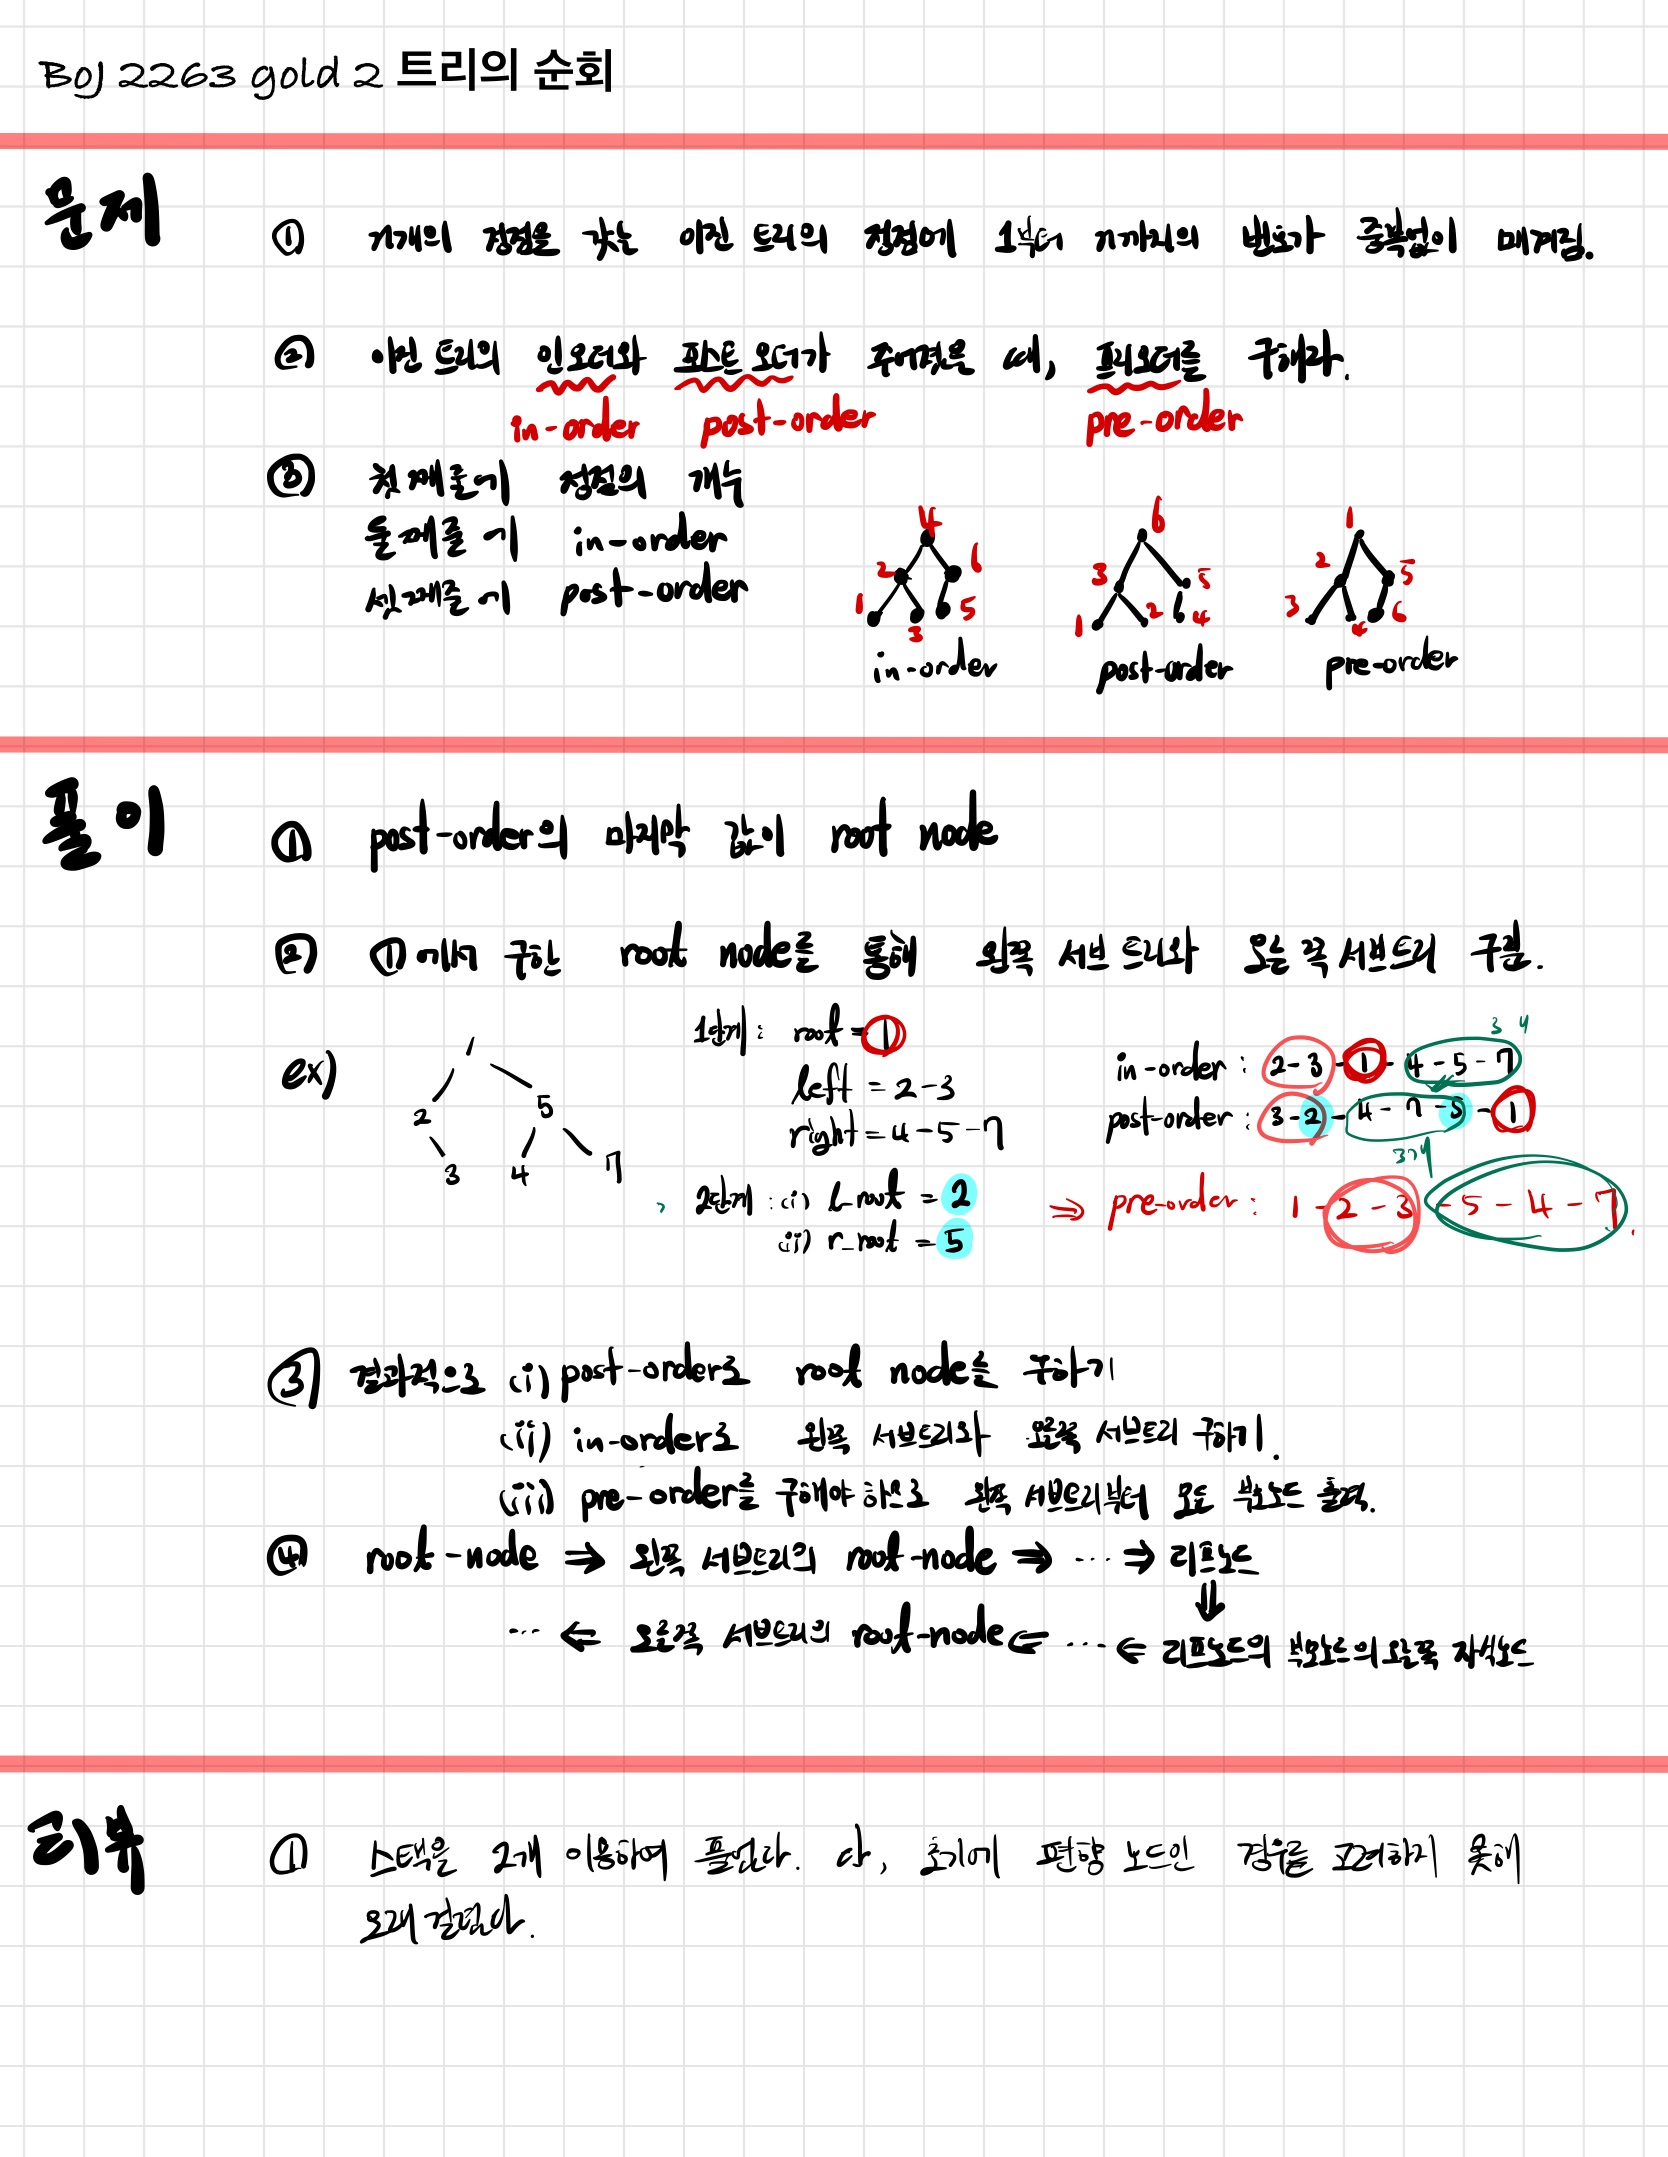 BOJ 2263 gold 2 트리의 순회
문제
① n개의 정점을 갖는 이진 트리의 정점에 1부터 n까지의 번호가 중복없이 매겨짐.
② 이진 트리의 인오더와 포스트오더가 주어졌을 때, 프리오더를 구해라.
in-order post-order pre-order
③ 첫째줄에 정점의 개수
둘째줄에 in-order
셋째줄에 post-order
4
2 6
1 3 5
in-order
6
3 5
1 2 4
post-order
1
2 5
3 4 6
pre-order
풀이
① post-order의 마지막 값이 root node
② ①에서 구한 root node를 통해 왼쪽 서브 트리와 오른쪽 서브트리 구분.
ex)
1
2 5
3 4 7
1단계 : root = 1
left = 2-3
right = 4-5-7
2단계 : (i) l_root = 2
(ii) r_root = 5
3 4
in-order : 2-3-1-4-5-7
post-order : 3-2-4-7-5-1
⇒ pre-order : 1-2-3-5-4-7.
③ 결과적으로 (i) post-order로 root node를 구하기
(ii) in-order로 왼쪽 서브트리와 오른쪽 서브트리 구하기.
(iii) pre-order를 구해야 하므로 왼쪽 서브트리부터 모든 부모노드 출력.
④ root-node ⇒ 왼쪽 서브트리의 root-node ⇒ ... ⇒ 리프노드
⇓
... ⇐ 오른쪽 서브트리의 root-node ⇐ ... ⇐ 리프노드의 부모노드의 오른쪽 자식노드
리뷰
① 스택을 2개 이용하여 풀었다. 다, 초기에 편향 노드인 경우를 고려하지 못해
오래 걸렸다.